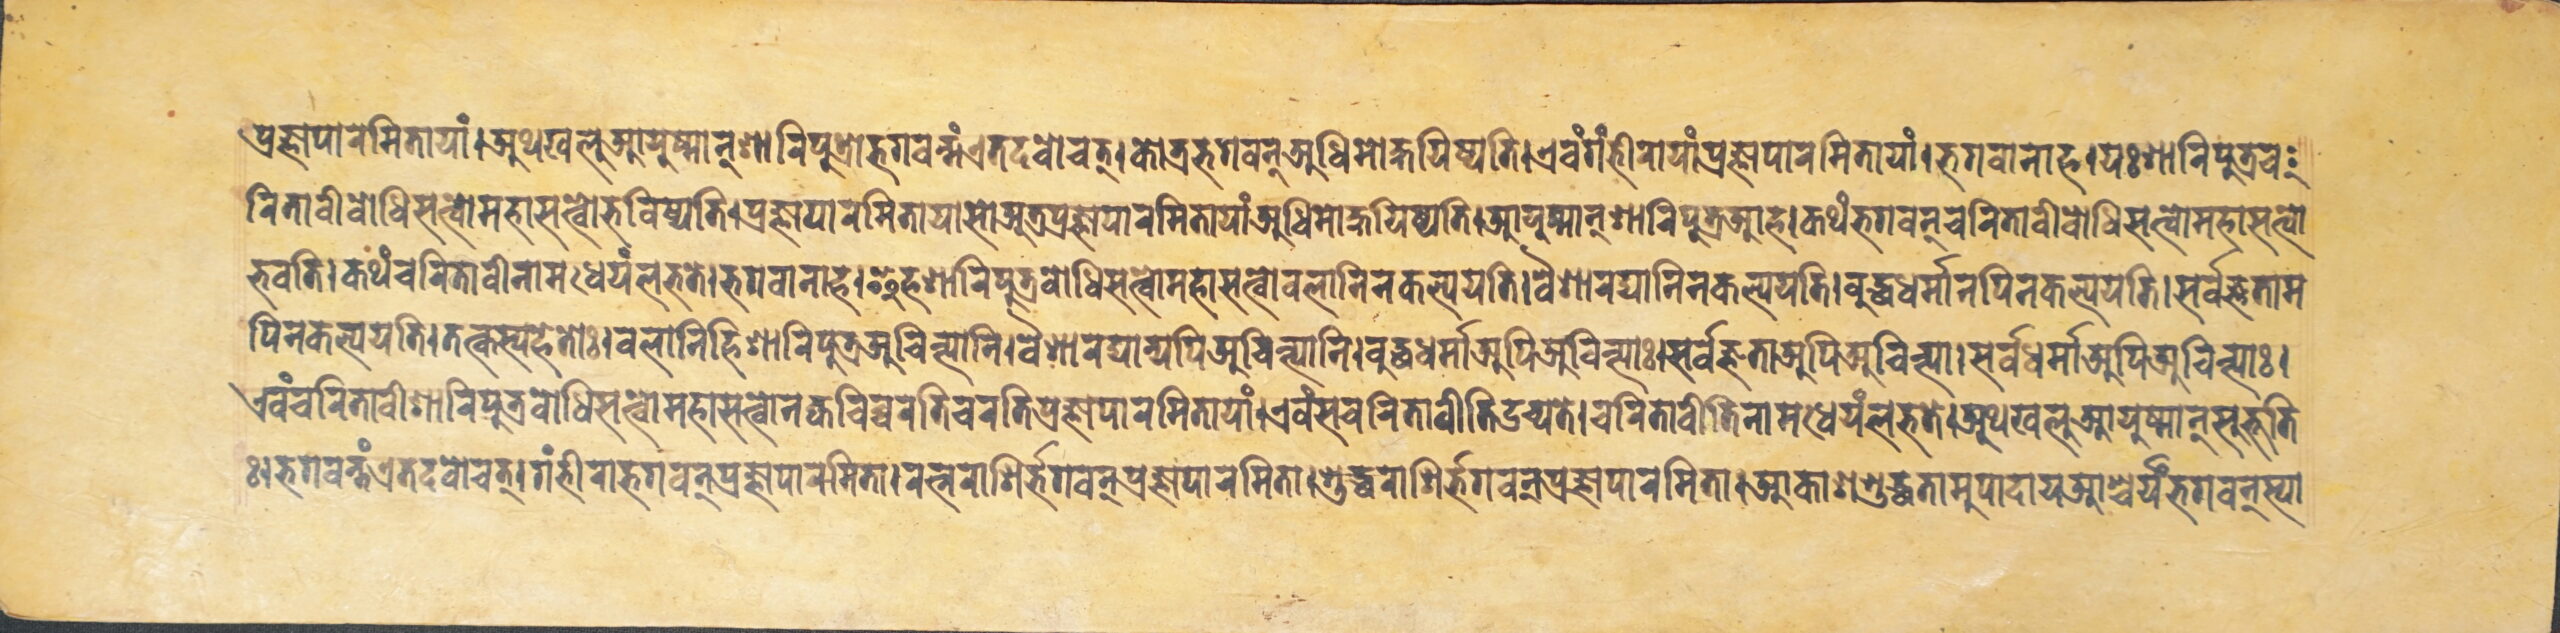 प्रज्ञापारमितायां।अथखलुआयुष्मान्शारिपुत्रोभगवन्तंएतदवोचत्।कोत्रभगवन्अधिमोक्षयिष्यति।एवंगंभीरायांप्रज्ञापारमितायां।भगवानाह।यःशारिपुत्रच
रितावीवोधिसत्त्वोमहासत्त्वोभविष्यति।प्रज्ञापारमितायासोअत्रप्रज्ञापारमितायांअधिमोक्षयिष्यति।आयुष्मान्शारिपुत्रआह।कथंभगवन्चरितावीवोधिसत्त्वोमहासत्त्वो
भवति।कथंचरितावीनामधेयंलभते।भगवानाह।इहशारिपुत्रवोधिसत्त्वोमहासत्त्वोवलानिनकल्पयति।वैशारद्यानिनकल्पयति।वुद्धधर्मानपिनकल्पयति।सर्वज्ञताम
पिनकल्पयति।तत्कस्यहेतोः।वलानिहिशारिपुत्रअचिन्त्यानि।वैशारद्यान्यपिअचिन्त्यानि।वुद्धधर्माअपिअचिन्त्याः।सर्वज्ञताअपिअचिन्त्या।सर्वधर्माअपिअचिन्त्याः।
एवंचरितावीशारिपुत्रवोधिसत्त्वोमहासत्त्वोनक्वचिच्चरतिचरतिप्रज्ञापारमितायां।एवंसचरितावीतिउच्यते।चरितावीतिनामधेयंलभते।अथखलुआयुष्मान्सुभूति
ः।भगवन्तंएतदवोचत्।गंभीराभगवन्प्रज्ञापारमिता।रत्नराशिर्भगवन्प्रज्ञापारमिता।शुद्धराशिर्भगवन्प्रज्ञापारमिता।आकाशशुद्धतामुपादायआश्चर्यंभगवन्स्या